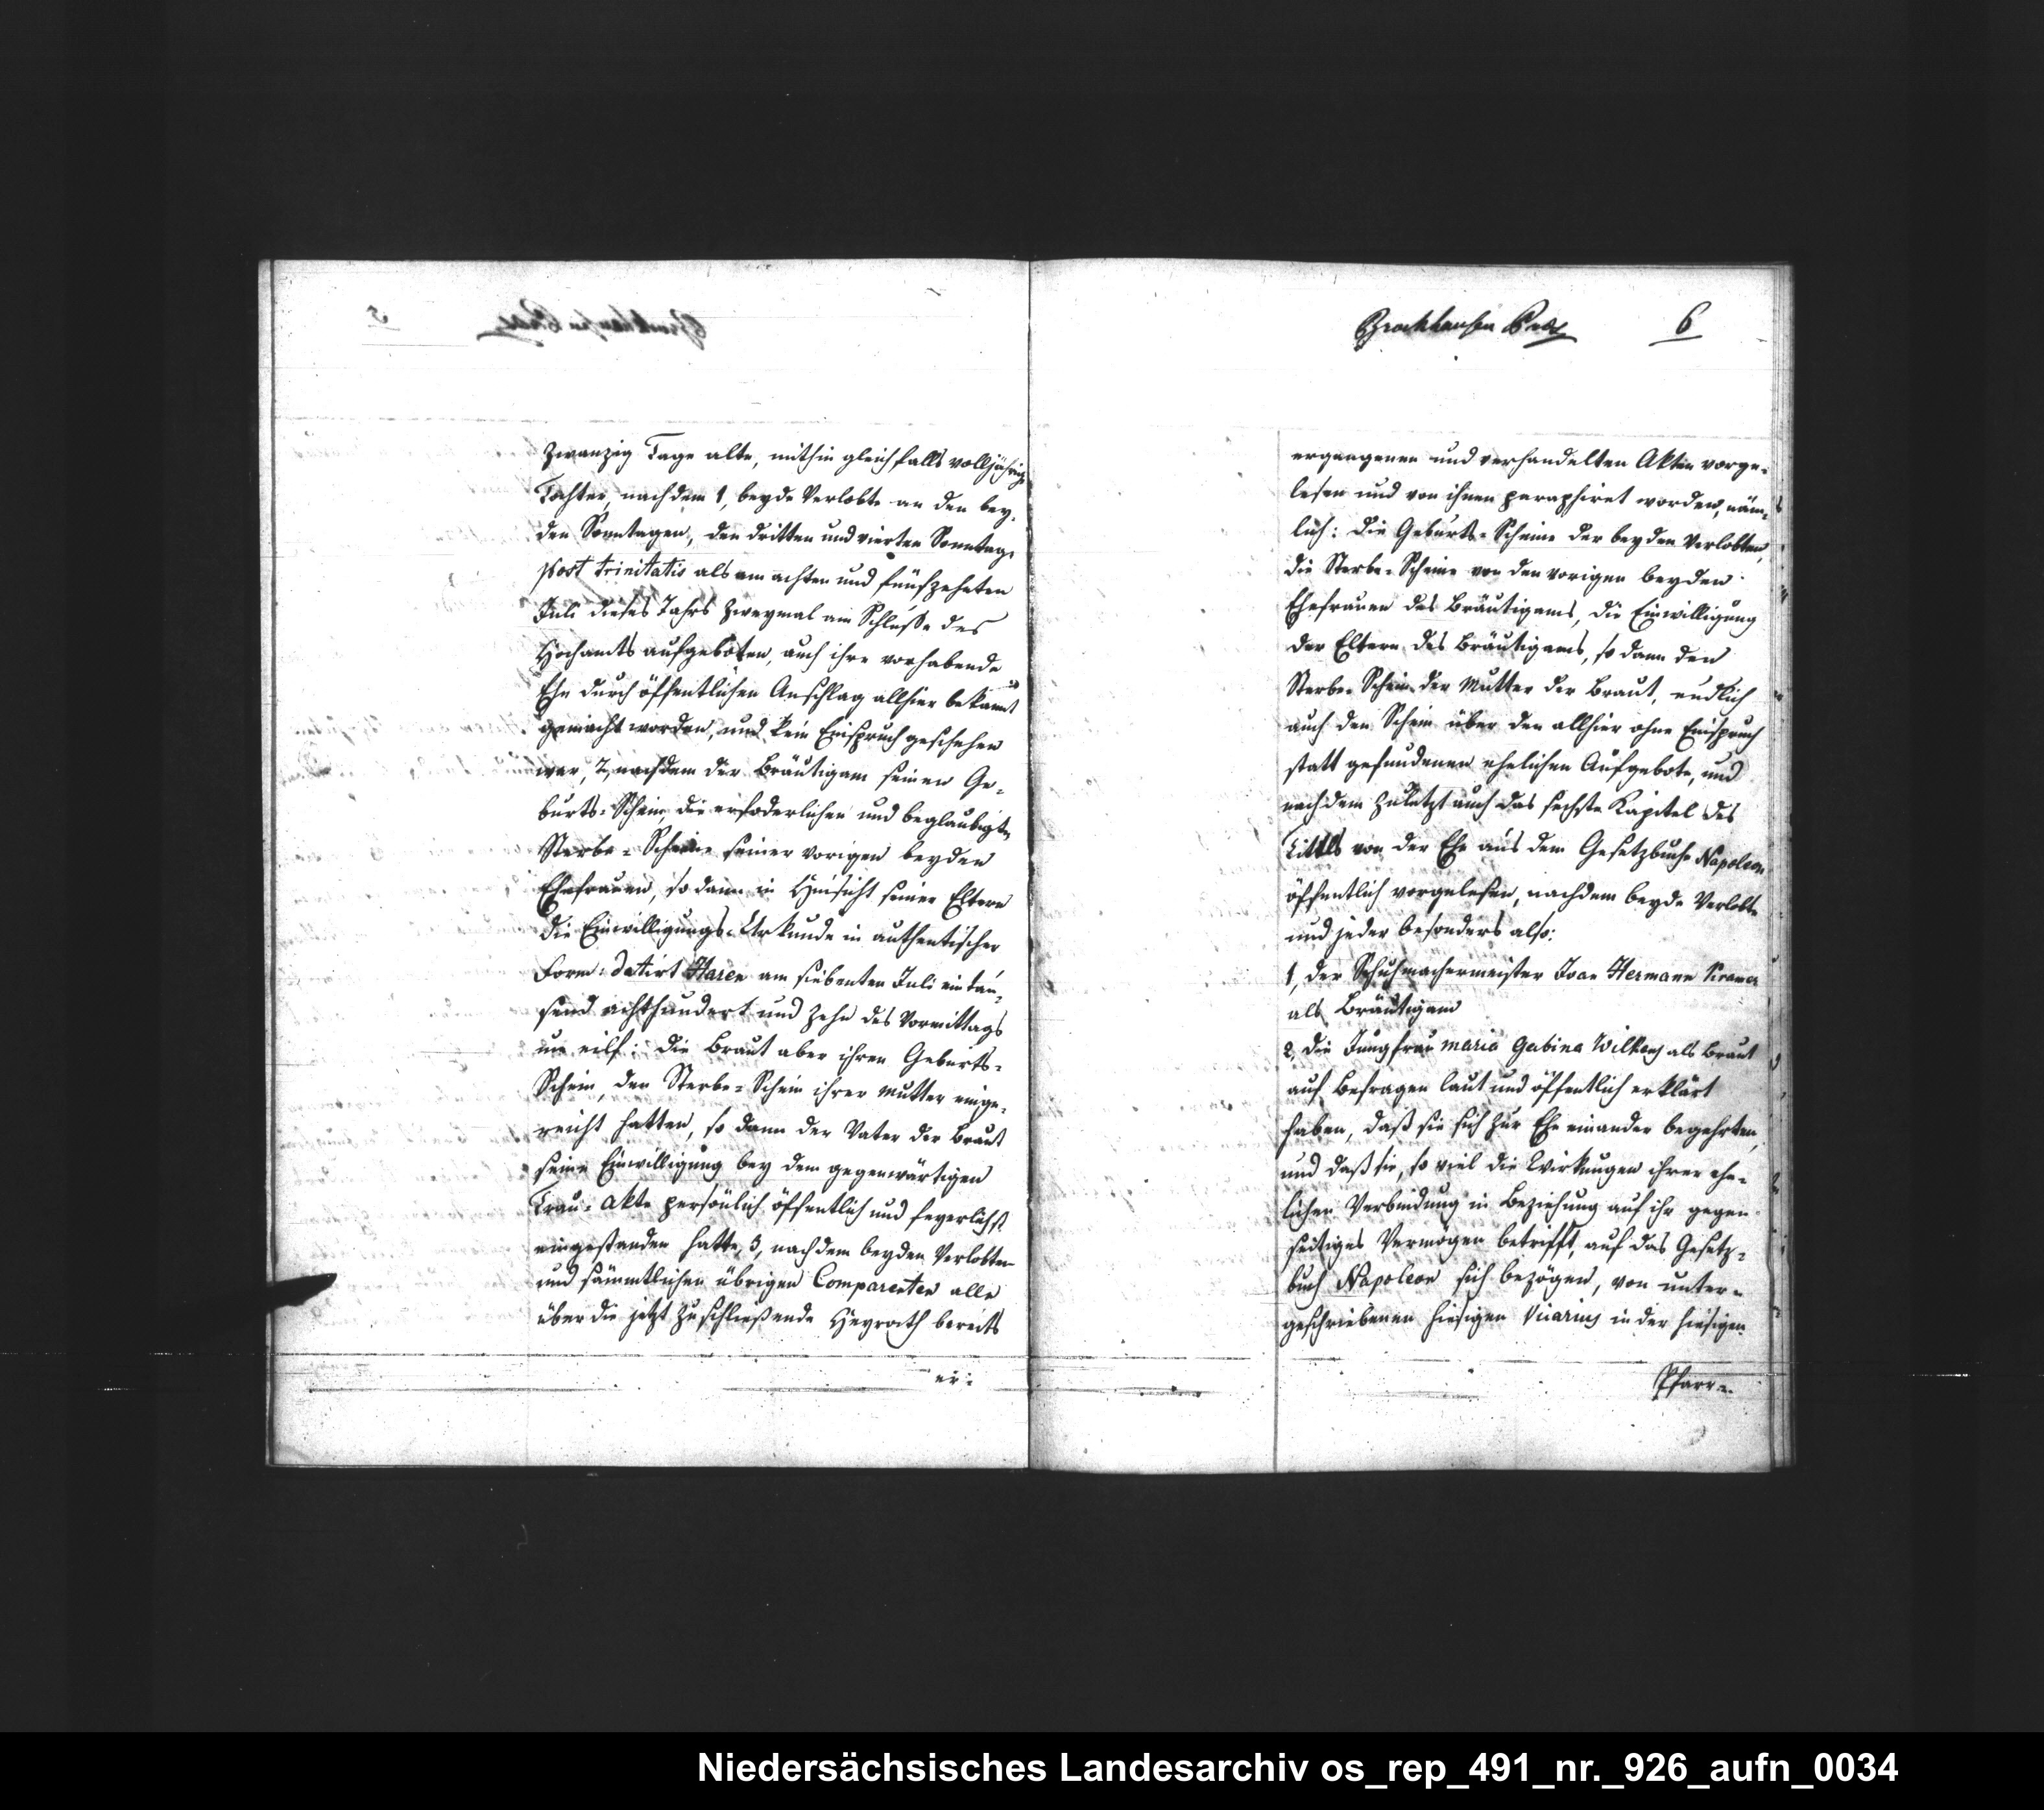 zwanzig Tage alte, mithin gleichfalls volljährige
Tochter, nachdem 1, beyde Verlobte an den bey-
den Sonntagen, den dritten und vierten Sonntag
post trinitatis als am achten und fünfzehnten
Juli dieses Jahrs zweymal am Schlusse des
Hochamts aufgeboten, auch ihre vorhabende
Ehe durch öffentlichen Anschlag allhier bekannt
gemacht worden, und kein Einspruch geschehen
war, 2, nachdem der Bräutigam seinen Ge-
burts-Schein, die erfoderlichen und beglaubigte
Sterbe-Scheine seiner vorigen beyden
Ehefrauen, sodann in Hinsicht seiner Eltern
die Einwilligungs-Urkunde in authentischer
Form datirt Haren am siebenten Juli ein tau-
send achthundert und zehn des Vormittags
um eilf; die Braut aber ihren Geburts-
Schein, den Sterbe-Schein ihrer Mutter einge-
reicht hatten, so dann der Vater der Braut
seine Einwilligung bey dem gegenwärtigen
Trau-Akte persönlich öffentlich und feyerlichst
eingestanden hatte, 3, nachdem beyden Verlobten
und sämmtlichen übrigen Comparenten alle
über die jetzt zu schließende Heyrath bereits
er-
Brockhausen 6
ergangenen und verhandelten Akten vorge-
lesen und von ihnen paraphiret worden, näm-
lich: die Geburts-Scheine der beyden Verlobten,
die Sterbe-Scheine von den vorigen beyden
Ehefrauen des Bräutigams, die Einwilligung
der Eltern des Bräutigams, so dann den
Sterbe-Schein der Mutter der Braut, endlich
auch den Schein über den allhier ohne Einspruch
statt gefundenen ehelichen Aufgebote, und
nachdem zuletzt auch das sechste Kapitel des
Tittels von der Ehe aus dem Gesetzbuche Napoleon
öffentlich vorgelesen, nachdem beyde Verlobte
und jeder besonders also:
1, der Schuhmachermeister Joan Hermann Kramer
als Bräutigam
2, die Jungfrau maria Gabina Wilkens als Braut
auf Befragen laut und öffentlich erklärt
haben, daß sie sich zur Ehe einander begehrten,
und daß sie, so viel die Wirkungen ihrer ehe-
lichen Verbindung in Beziehung auf ihr gegen
seitiges Vermögen betrifft, auf das Gesetz-
buch Napoleon sich bezögen, von unter-
geschriebenen hiesigen Vicarius in der hiesigen
Pfarr-
Niedersächsisches Landesarchiv os_rep_491_nr._926_aufn_0034